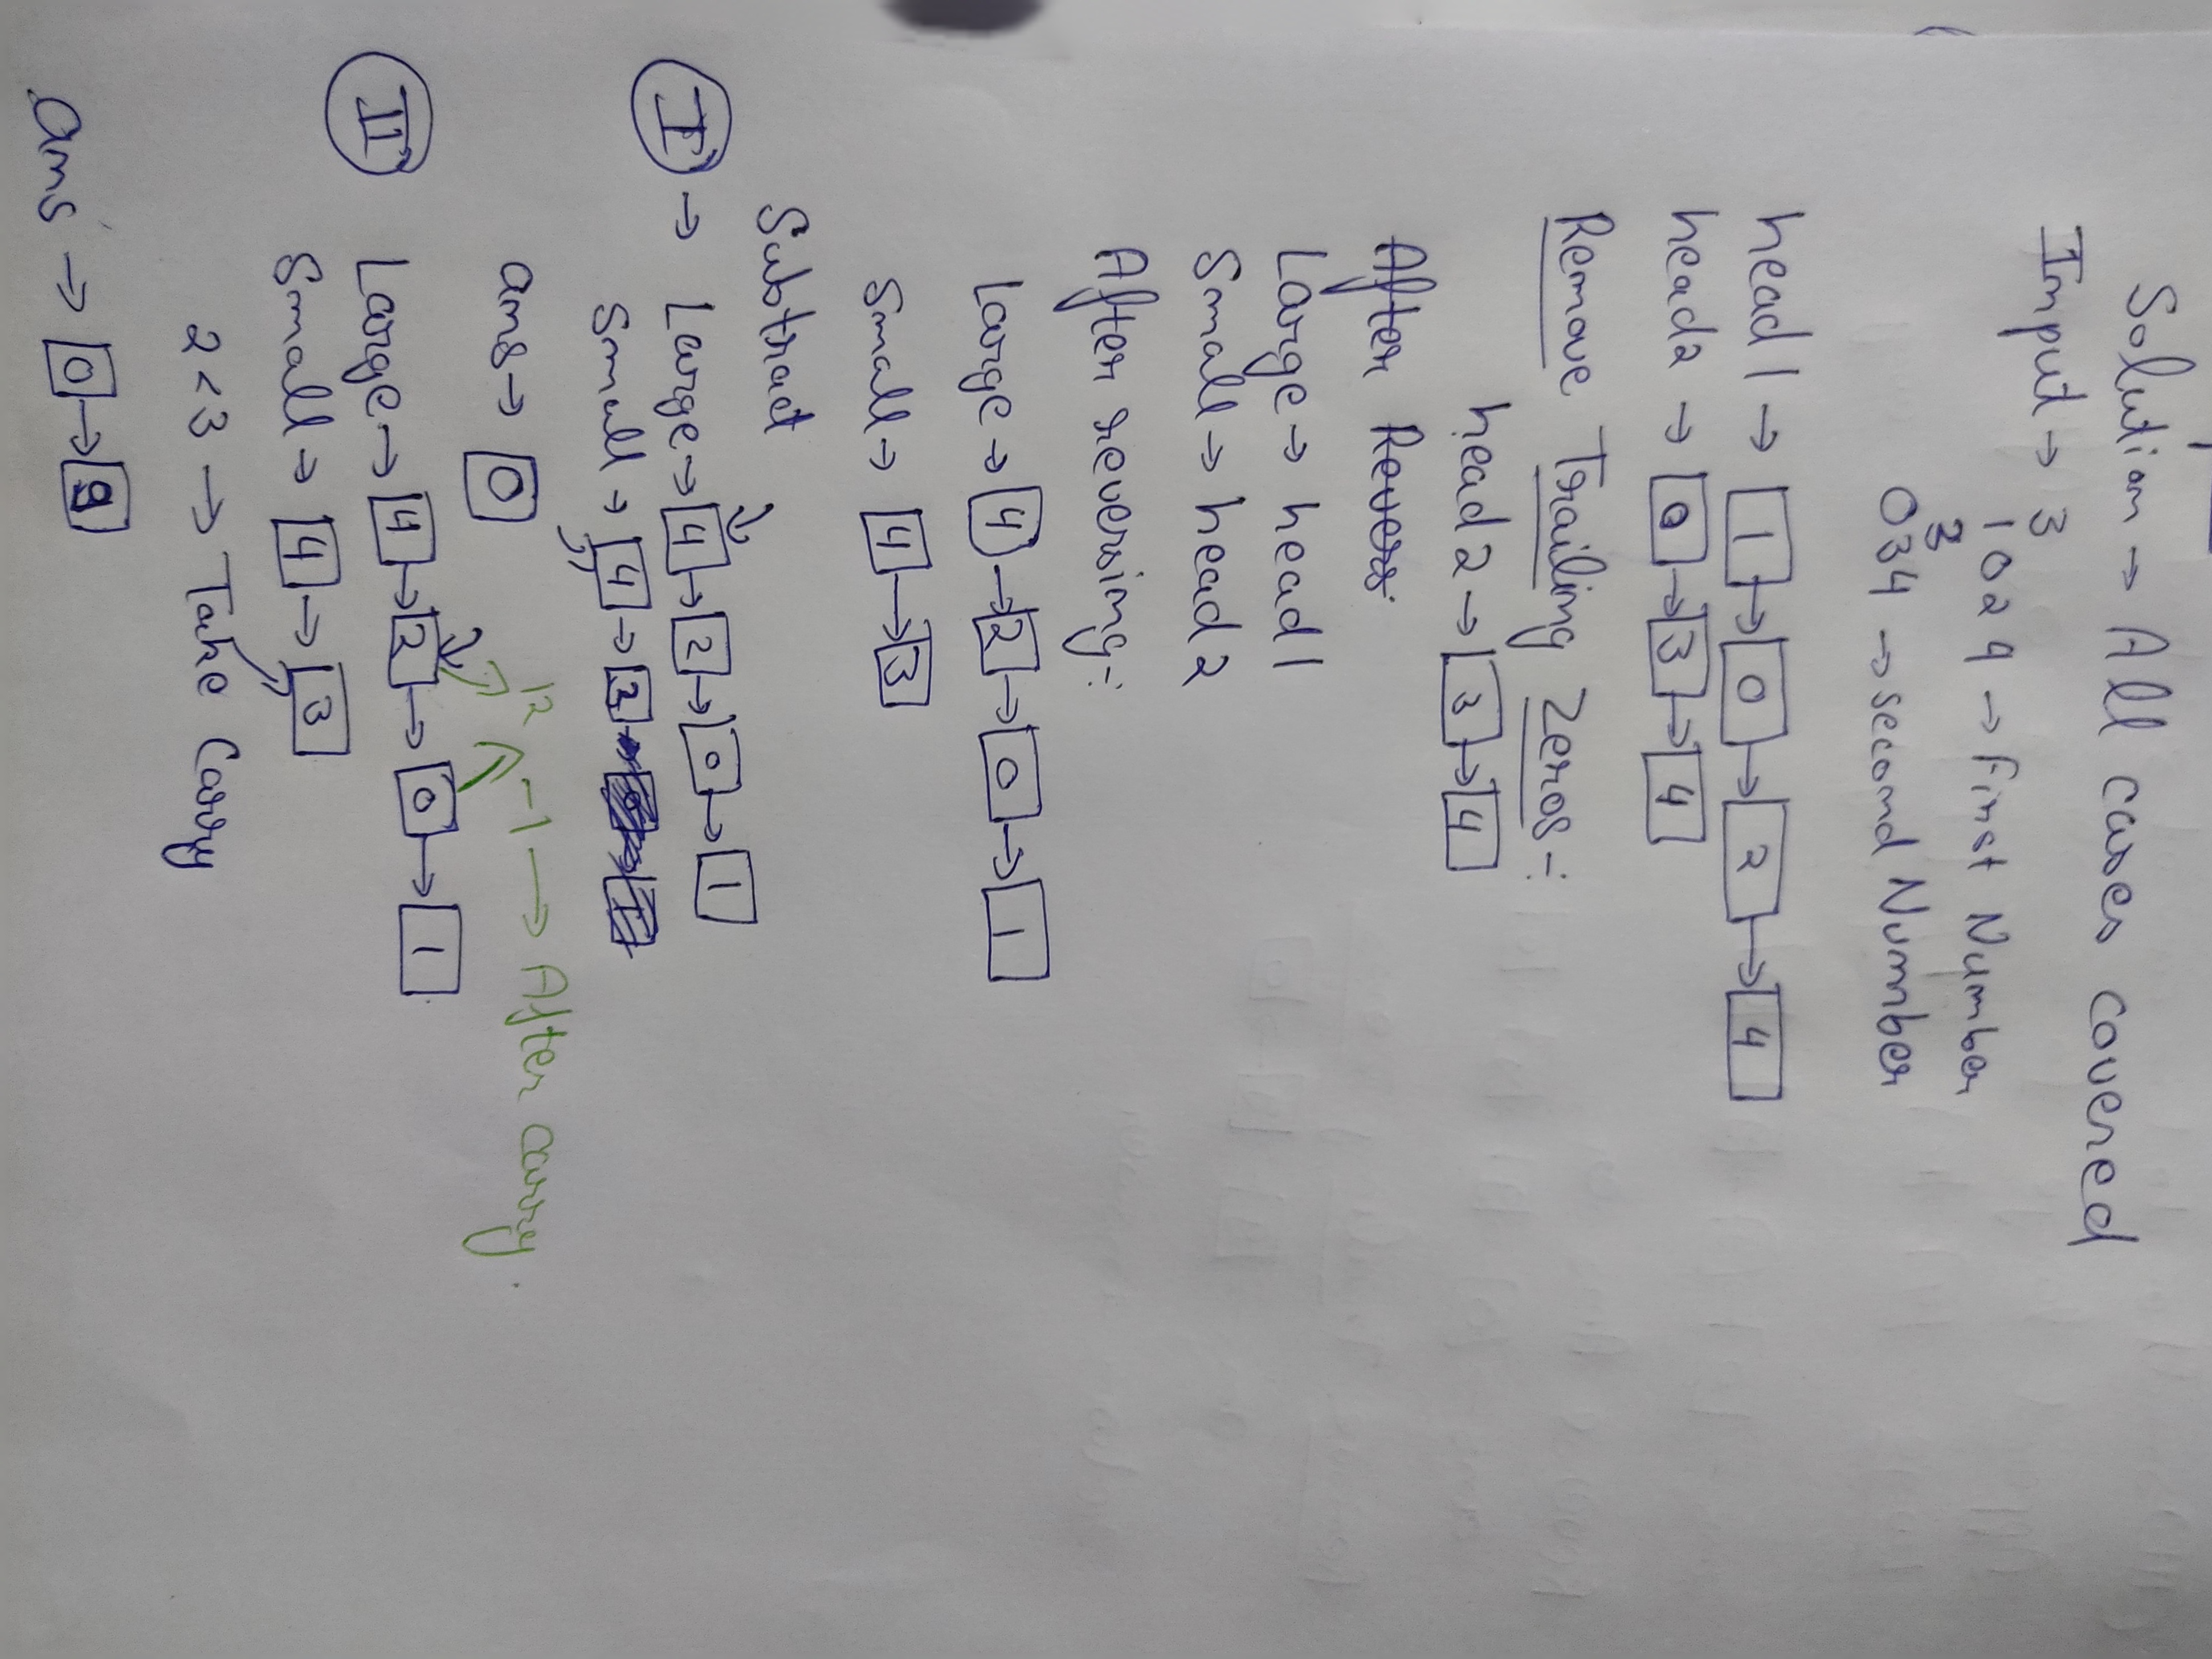 Solution → All cases covered
Input → 3
1 0 2 4 → First Number
3
0 3 4 → second Number
head 1 → 1 → 0 → 2 → 4
head 2 → 0 → 3 → 4
Remove Trailing Zeros :-
head 2 → 3 → 4
After Revers:
Large → head 1
Small → head 2
After reversing :-
Large → 4 → 2 → 0 → 1
Small → 4 → 3
Subtract
I → Large → 4 → 2 → 0 → 1
Small → 4 → 3
ans → 0
12 -1 → After carry
II Large → 4 → 2 → 0 → 1
Small → 4 → 3
2 < 3 → Take Carry
ans → 0 → 9